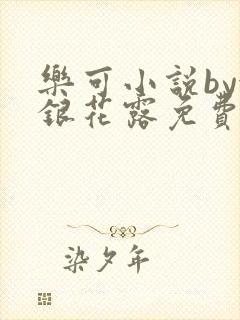 樂可小説by
銀花露免費
染夕年